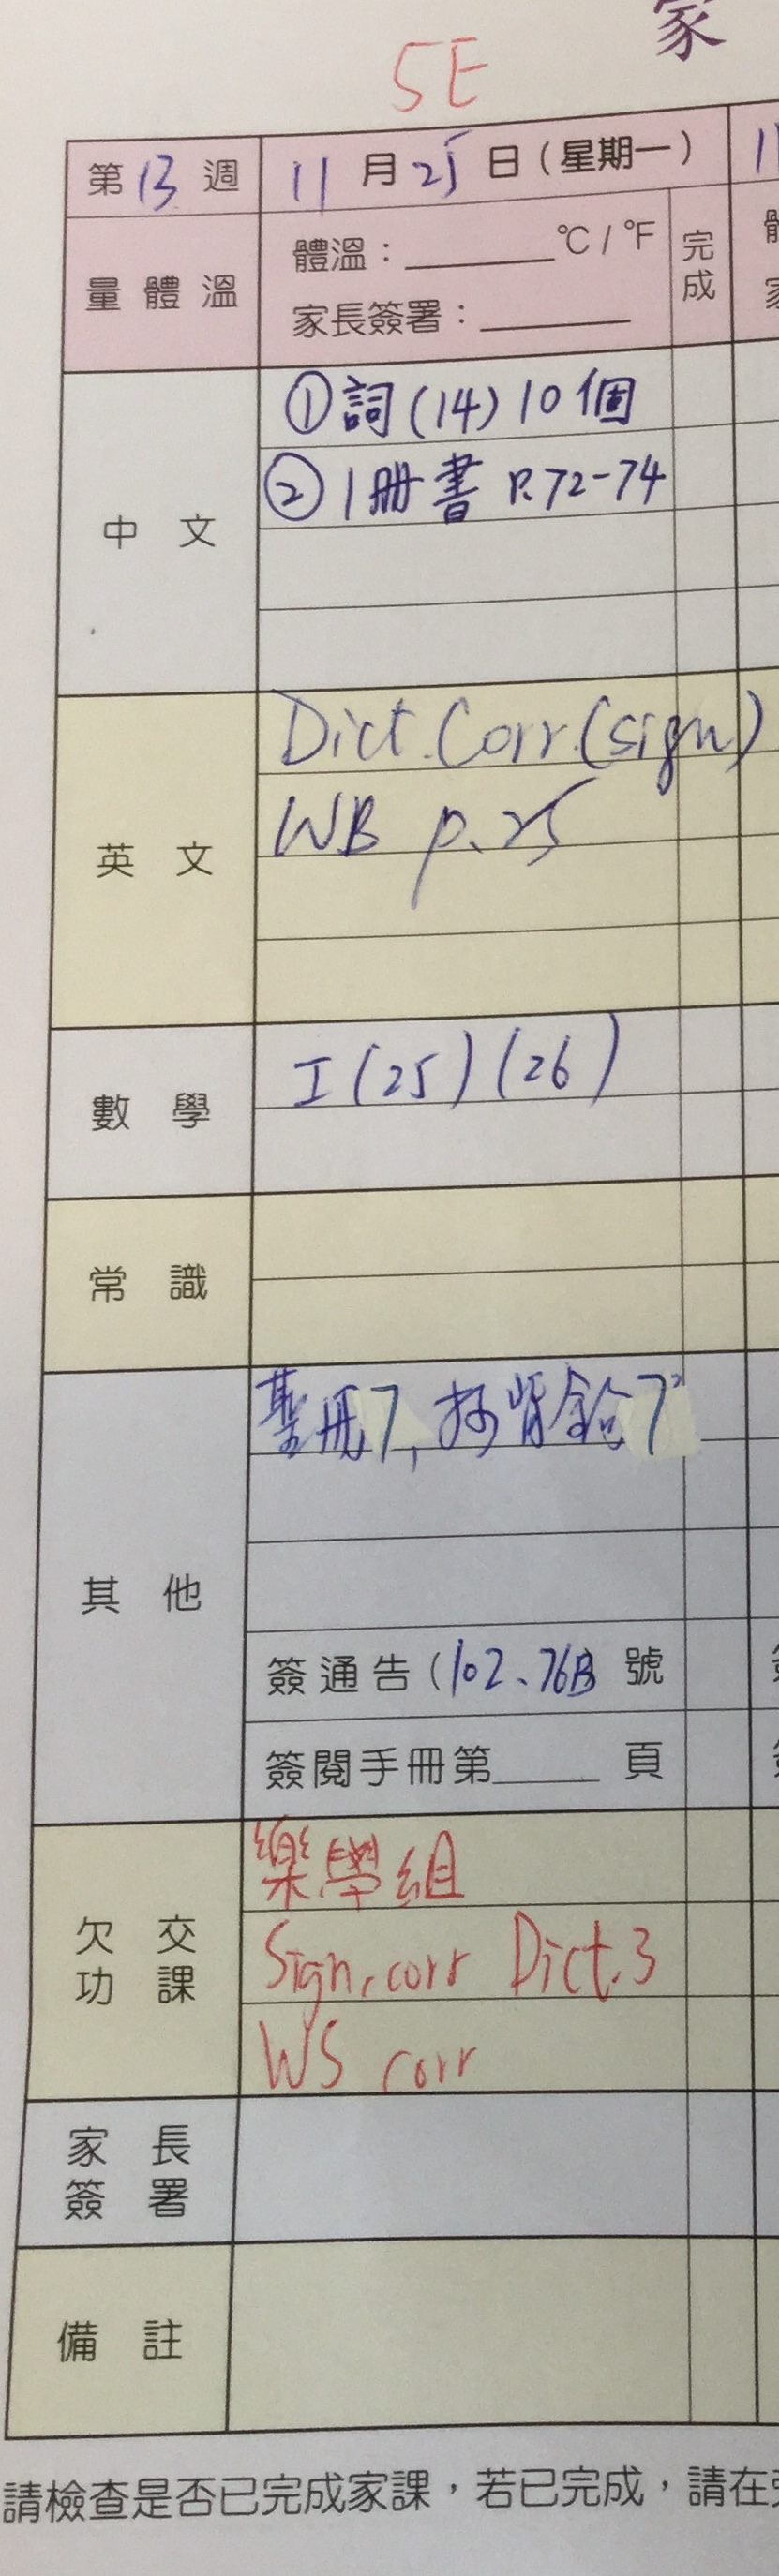 家
5E
第 13 週
11 月 25 日(星期一)
11
量體溫
體溫：______℃ / ℉
完成
體
家長簽署：______
家
中 文
①詞(14)10個
②1冊書 P.72-74
英 文
Dict. Corr.(sign)
WB p.25
數 學
I (25)(26)
常 識
其 他
聖冊7,
7
簽通告(102、76B 號
簽
簽閱手冊第____ 頁
簽
欠 交
功 課
樂學組
Sign, corr Dict.3
WS corr
家 長
簽 署
備 註
請檢查是否已完成家課，若已完成，請在